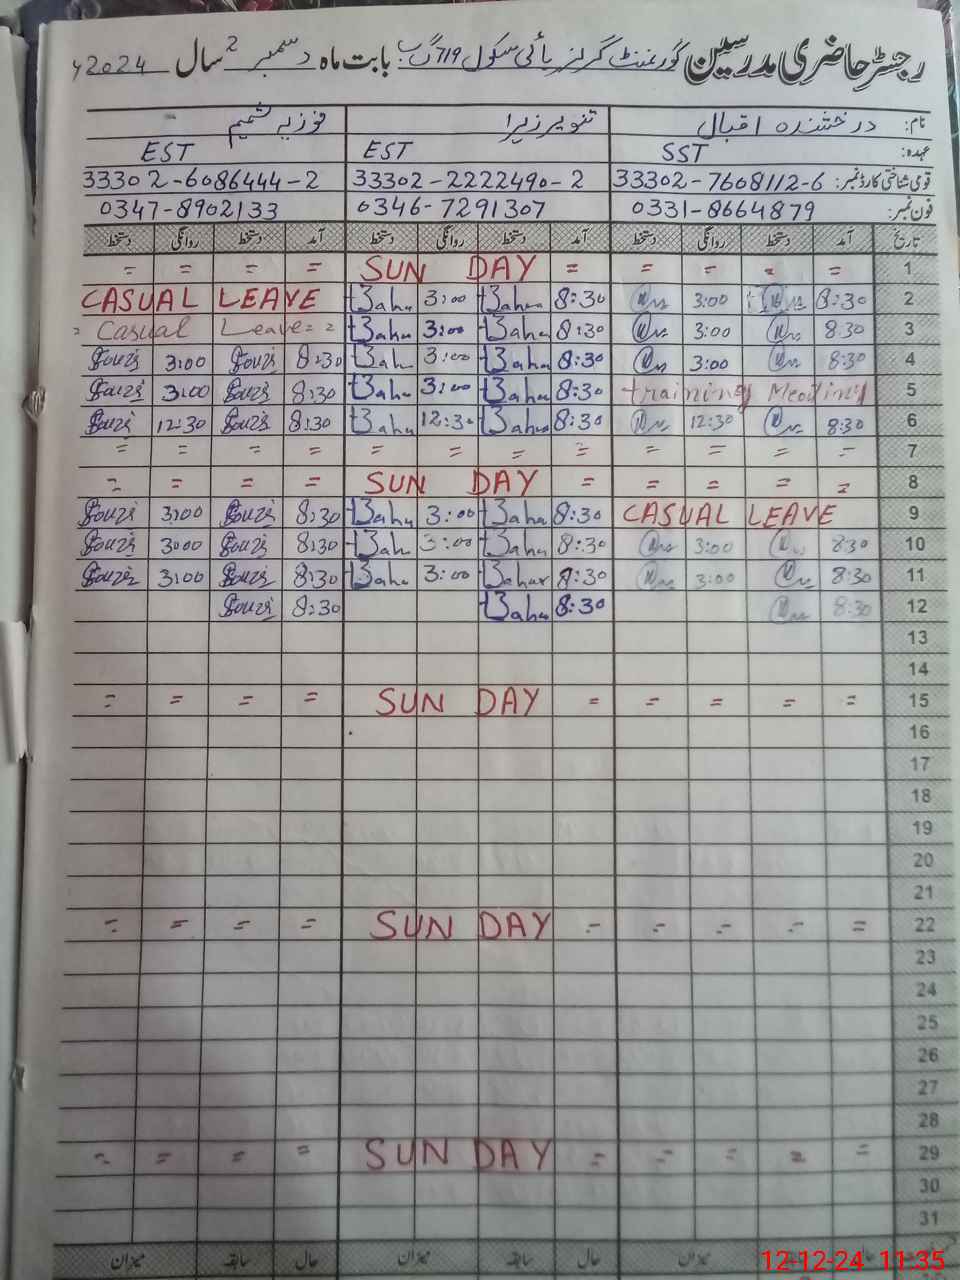 رجسٹر حاضری مدرسین گورنمنٹ گرلز ہائی سکول 719 گ ب بابت ماہ دسمبر سال 2024ء
نام: درخشندہ اقبال تنویر زہرا فوزیہ شمیم
عہدہ: SST EST EST
قومی شناختی کارڈ نمبر: 33302-7608112-6 33302-2222490-2 33302-6086444-2
فون نمبر: 0331-8664879 0346-7291307 0347-8902133
تاریخ آمد دستخط روانگی دستخط آمد دستخط روانگی دستخط آمد دستخط روانگی دستخط
1 = = = = = SUN DAY = = = =
2 8:30 3:00 8:30 3:00 CASUAL LEAVE
3 8:30 3:00 8:30 3:00 = Casual Leave = =
4 8:30 3:00 8:30 3:00 8:30 3:00
5 training Meeting 8:30 3:00 8:30 3:00
6 8:30 12:30 8:30 12:30 8:30 12:30
7 = = = = = = = = = = = =
8 = = = = = SUN DAY = = = =
9 CASUAL LEAVE 8:30 3:00 8:30 3:00
10 8:30 3:00 8:30 3:00 8:30 3:00
11 8:30 3:00 8:30 3:00 8:30 3:00
12 8:30 8:30 8:30
13
14
15 = = = = = SUN DAY = = = =
16
17
18
19
20
21
22 = = = = = SUN DAY = = = =
23
24
25
26
27
28
29 = = = = = SUN DAY = = = =
30
31
حال سابقہ میزان حال سابقہ میزان
12-12-24 11:35